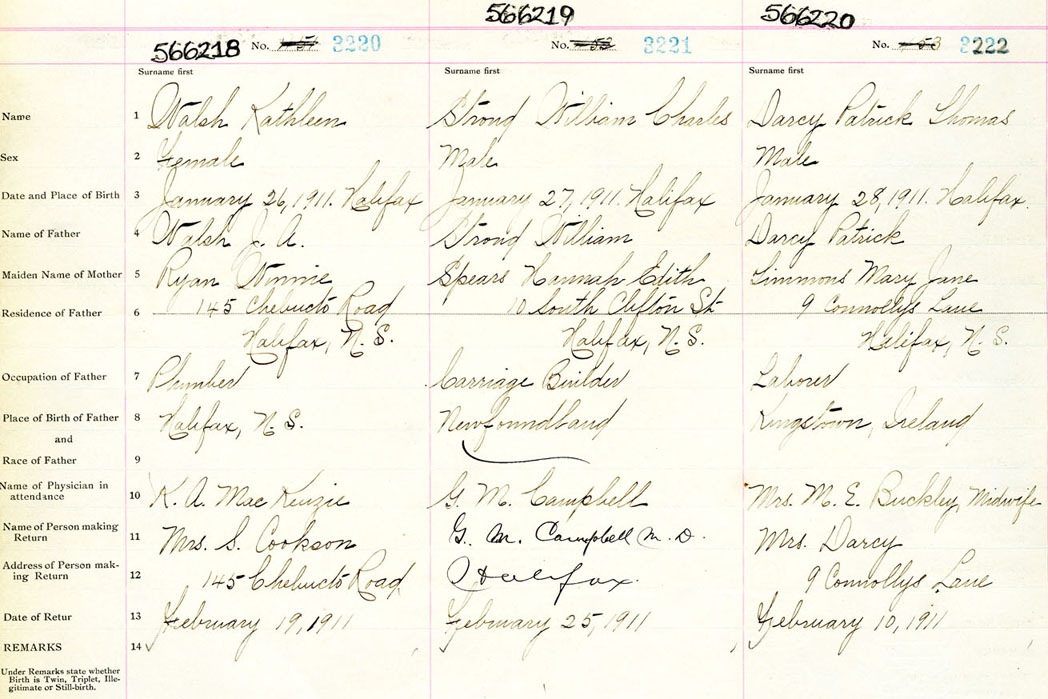 566219 566220
566218 No. 3220 No. 3221 No. 53 3222
Surname first Surname first Surname first
Name 1 Walsh Kathleen Strong William Charles Darcy Patrick Thomas
Sex 2 Female Male Male
Date and Place of Birth 3 January 26, 1911. Halifax January 27, 1911. Halifax January 28, 1911. Halifax.
Name of Father 4 Walsh J. A. Strong William Darcy Patrick
Maiden Name of Mother 5 Ryan Winnie Spears Hannah Edith Simmons Mary Jane
Residence of Father 6 145 Chebucto Road 10 South Clifton St 9 Connollys Lane
Halifax, N. S. Halifax, N. S. Halifax, N. S.
Occupation of Father 7 Plumber Carriage Builder Laborer
Place of Birth of Father 8 Halifax, N. S. Newfoundland Kingstown, Ireland
and
Race of Father 9
Name of Physician in
attendance 10 K. A. MacKenzie G. M. Campbell Mrs. M. E. Buckley, Midwife
Name of Person making
Return 11 Mrs. S. Cookson G. M. Campbell M. D. Mrs. Darcy
Address of Person mak-
ing Return 12 145 Chebucto Road Halifax. 9 Connollys Lane
Date of Retur 13 February 19, 1911 February 25, 1911 February 10, 1911
REMARKS 14
Under Remarks state whether
Birth is Twin, Triplet, Ille-
gitimate or Still-birth.